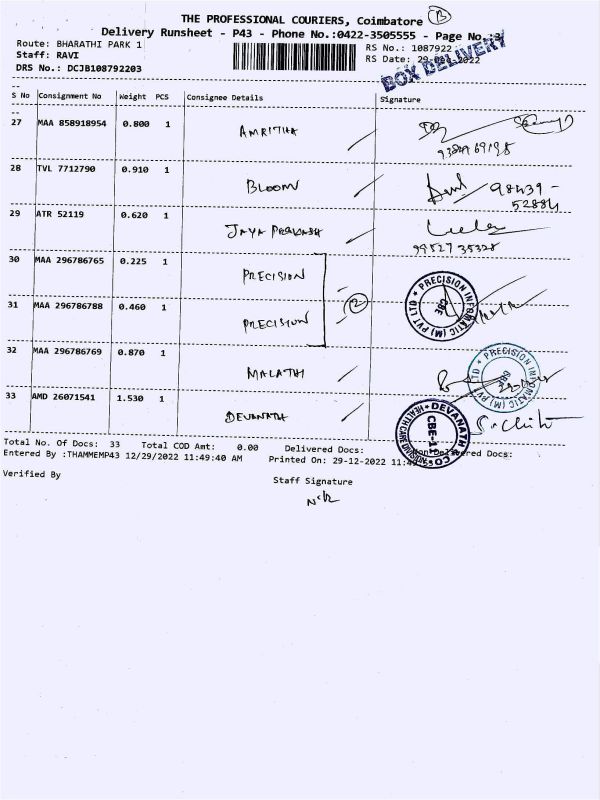 THE PROFESSIONAL COURIERS, Coimbatore B
Delivery Runsheet - P43 - Phone No.:0422-3505555 - Page No.:3
Route: BHARATHI PARK 1 RS No.: 1087922
Staff: RAVI RS Date: 29-Dec-2022
DRS No.: DCJB108792203
BOX DELIVERY
S No Consignment No Weight PCS Consignee Details Signature
27 MAA 858918954 0.800 1 AMRITHA
28 TVL 7712790 0.910 1 BLOOM 98439-
52884
29 ATR 52119 0.620 1 JAYA PRAKASH Leela
99527 35328
30 MAA 296786765 0.225 1 PRECISION
2
PRECISION INFORMATIC (M) PVT LTD CBE
31 MAA 296786788 0.460 1 PRECISION
32 MAA 296786769 0.870 1 MALATHI
PRECISION INFORMATIC (M) PVT LTD CBE
33 AMD 26071541 1.530 1 DEVANATH
DEVANATH HEALTHCARE CBE-11
Total No. Of Docs: 33 Total COD Amt: 0.00 Delivered Docs: Non Delivered Docs:
Entered By :THAMMEMP43 12/29/2022 11:49:40 AM Printed On: 29-12-2022
Verified By Staff Signature